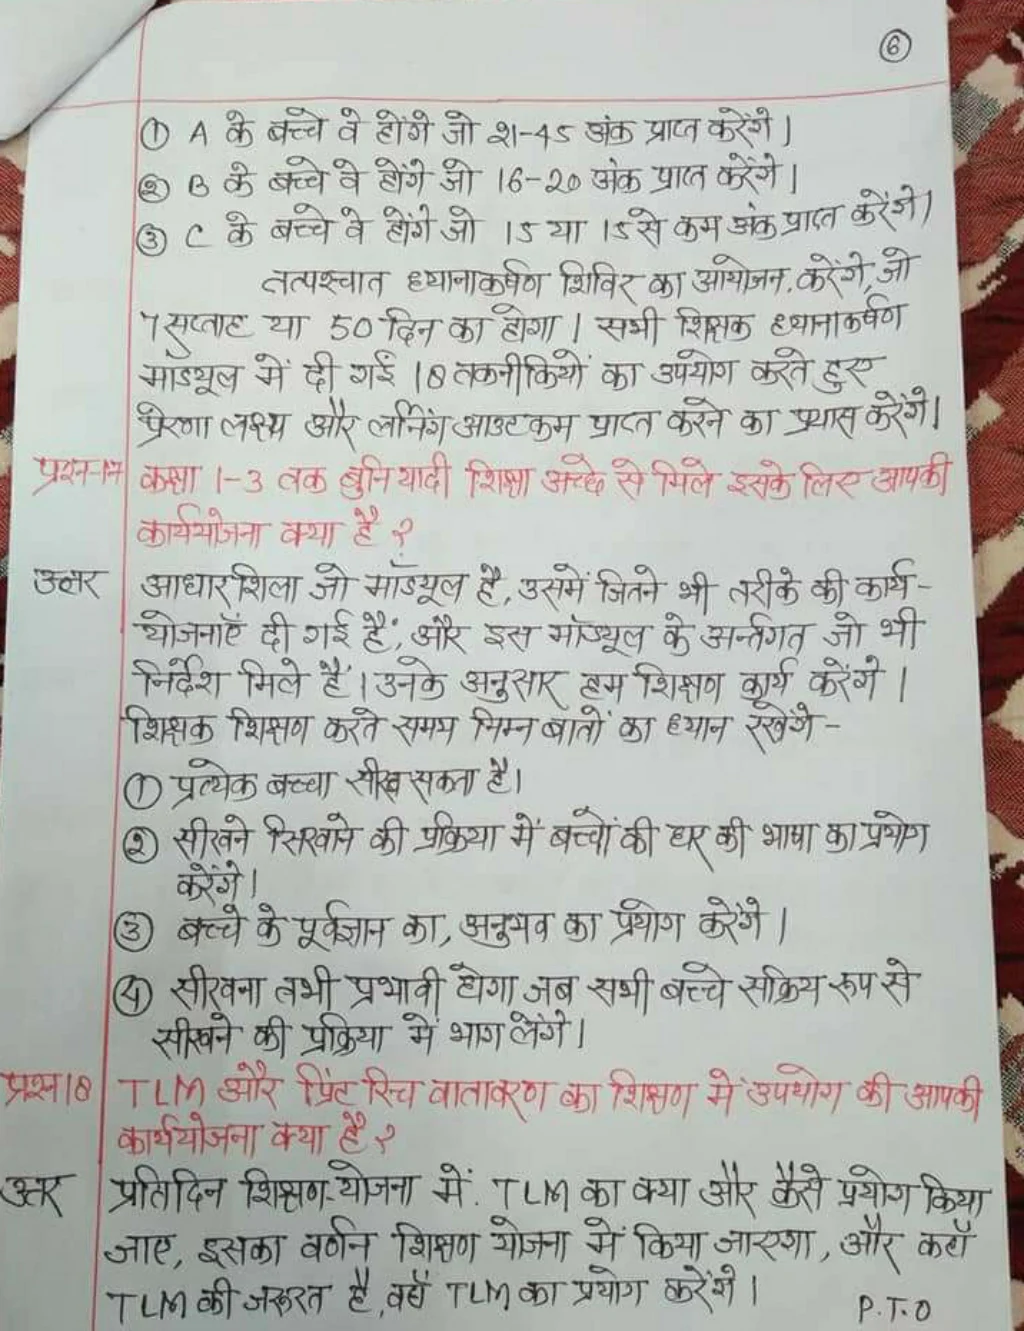 6
① A के बच्चे वे होंगे जो 21-45 अंक प्राप्त करेंगे।
② B के बच्चे वे होंगे जो 16-20 अंक प्राप्त करेंगे।
③ C के बच्चे वे होंगे जो 15 या 15 से कम अंक प्राप्त करेंगे।
तत्पश्चात ध्यानाकर्षण शिविर का आयोजन करेंगे, जो
7 सप्ताह या 50 दिन का होगा। सभी शिक्षक ध्यानाकर्षण
माड्यूल में दी गई 18 तकनीकियों का उपयोग करते हुए
प्रेरणा लक्ष्य और लर्निंग आउटकम प्राप्त करने का प्रयास करेंगे।
प्रश्न-17 कक्षा 1-3 तक बुनियादी शिक्षा अच्छे से मिले इसके लिए आपकी
कार्ययोजना क्या है?
उत्तर आधारशिला जो मॉड्यूल है, उसमें जितने भी तरीके की कार्य-
योजनाएँ दी गई हैं, और इस मॉड्यूल के अर्न्तगत जो भी
निर्देश मिले हैं। उनके अनुसार हम शिक्षण कार्य करेंगे।
शिक्षक शिक्षण करते समय निम्न बातों का ध्यान रखेंगे-
① प्रत्येक बच्चा सीख सकता है।
② सीखने सिखाने की प्रक्रिया में बच्चों की घर की भाषा का प्रयोग
करेंगे।
③ बच्चे के पूर्वज्ञान का, अनुभव का प्रयोग करेंगे।
④ सीखना तभी प्रभावी होगा जब सभी बच्चे सक्रिय रूप से
सीखने की प्रक्रिया में भाग लेंगे।
प्रश्न 18 TLM और प्रिंट रिच वातावरण का शिक्षण में उपयोग की आपकी
कार्ययोजना क्या है?
उत्तर प्रतिदिन शिक्षण-योजना में. TLM का क्या और कैसे प्रयोग किया
जाए, इसका वर्णन शिक्षण योजना में किया जाएगा, और कहाँ
TLM की जरूरत है, वहाँ TLM का प्रयोग करेंगे।
P.T.O